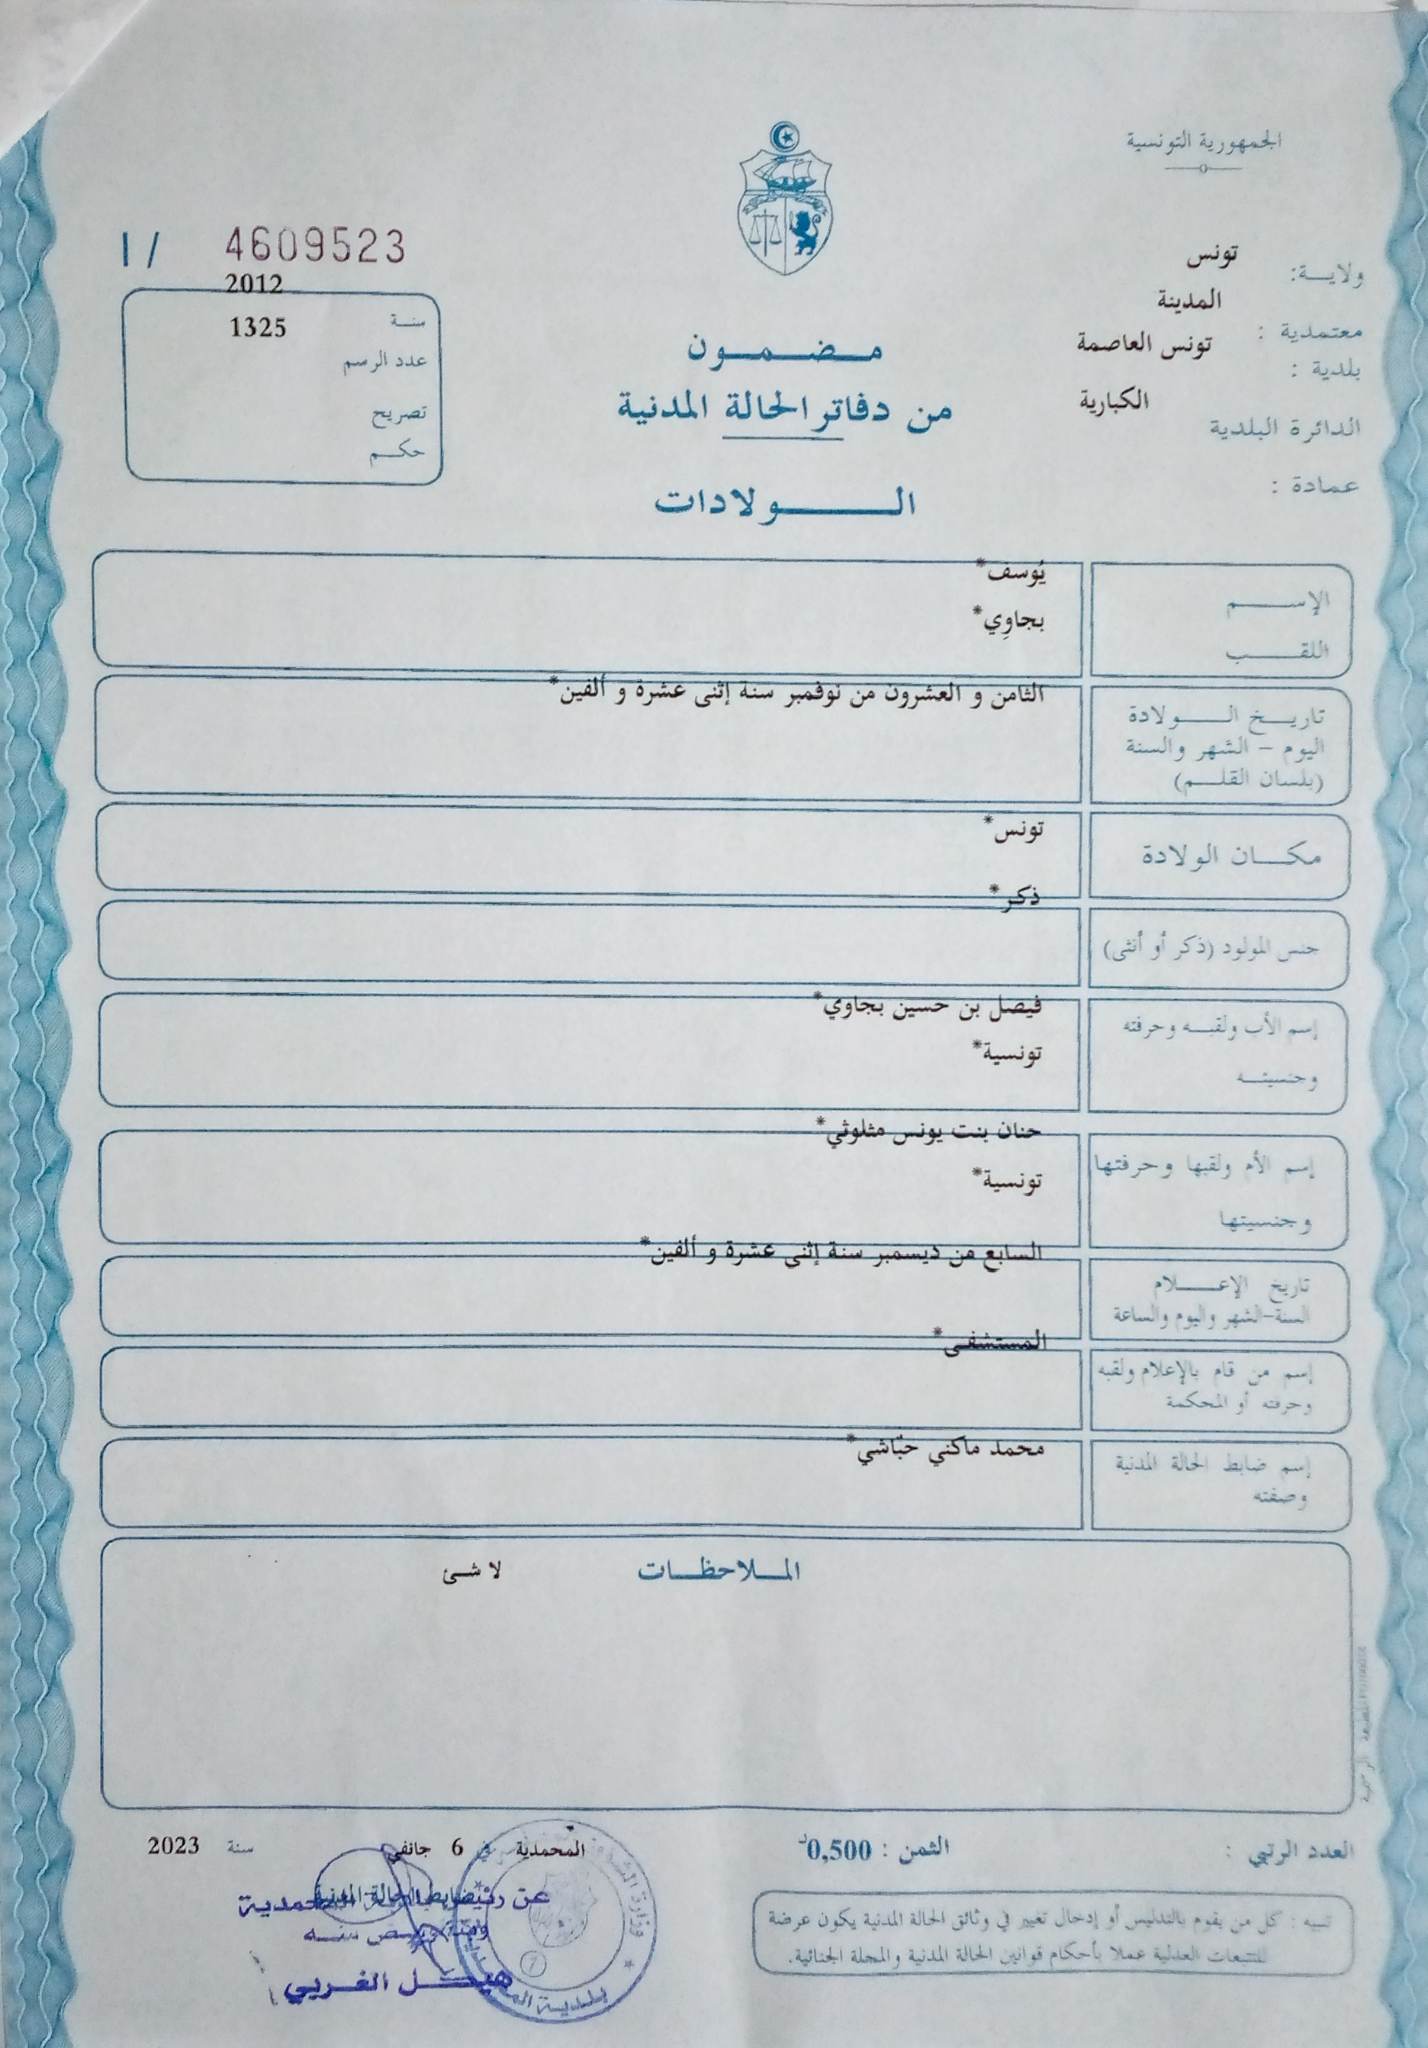 الجمهورية التونسية
ولايـــة: تونس
معتمدية : المدينة
بلدية : تونس العاصمة
الدائرة البلدية الكبارية
عمادة :
I / 4609523
سنـة 2012
عدد الرسم 1325
تصريح
حكـم
مـضـمـون
من دفاتر الحالة المدنية
الـولادات
الإسـم يُوسف*
اللقـب بجاوِي*
تاريـخ الـولادة الثامن و العشرون من نوفمبر سنة إثنى عشرة و ألفين*
اليوم – الشهر والسنة
(بلسان القلـم)
مكـان الولادة تونس*
جنس المولود (ذكر أو أنثى) ذكر*
إسم الأب ولقبـه وحرفته فيصل بن حسين بجاوي*
وجنسيتـه تونسية*
إسم الأم ولقبها وحرفتها حنان بنت يونس مثلوثي*
وجنسيتها تونسية*
تاريخ الإعـلام السابع من ديسمبر سنة إثنى عشرة و ألفين*
السنة-الشهر واليوم والساعة
إسم من قام بالإعلام ولقبه المستشفى*
وحرفته أو المحكمة
إسم ضابط الحالة المدنية محمد ماكني حبّاشي*
وصفته
الملاحظـات لا شئ
العدد الرتبي :
الثمن : 0,500د
المحمدية في 6 جانفي سنة 2023
هيكل الغربي
تنبيه : كل من يقوم بالتدليس أو إدخال تغيير في وثائق الحالة المدنية يكون عرضة
للتتبعات العدلية عملا بأحكام قوانين الحالة المدنية والمجلة الجنائية.